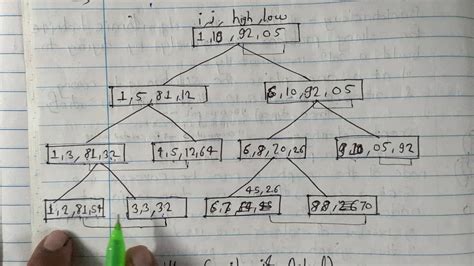 i, j, high, low
1, 10, 92, 05
1, 5, 81, 12
6, 10, 92, 05
1, 3, 81, 32
4, 5, 12, 64
6, 8, 20, 26
9, 10, 05, 92
45, 26
1, 2, 81, 54
3, 3, 32
6, 7,